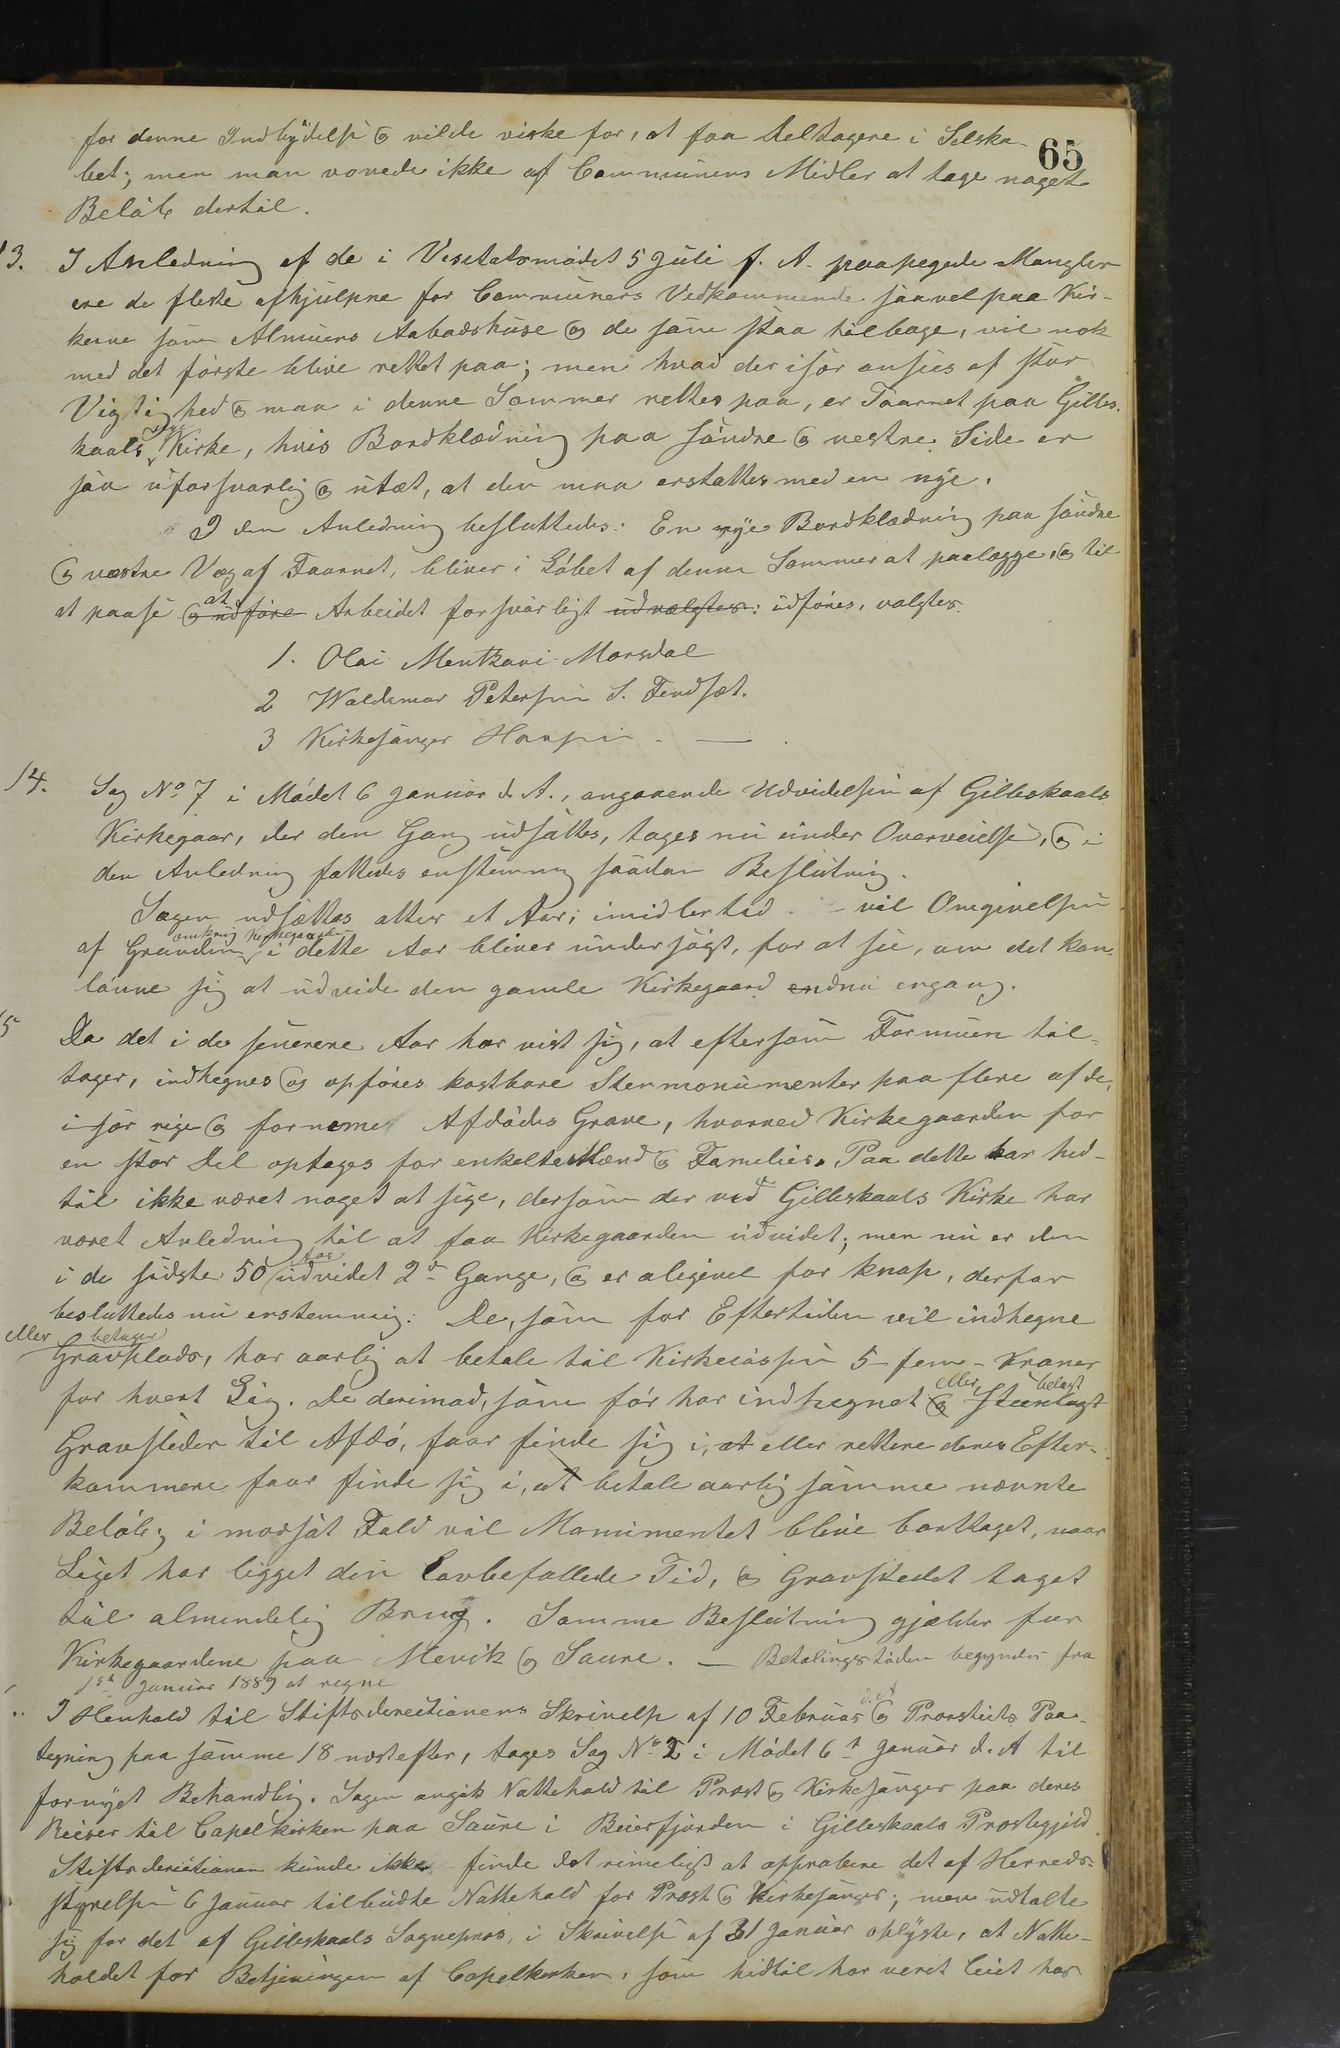 65
for denne Indbydelse og vilde virke for, at faa Deltagere i Selska-
bet; men man vovede ikke af Communens Midler at tage noget
Beløb dertil.
13. I Anledning af de i Visitatsmødet 5 Juli f. A. paapegede Mangler
ere de fleste afhjulpne for Communens Vedkommende saavel paa Kir-
kerne som Almuens Aabodshuse og de som staa tilbage, vil nok
med det første blive rettet paa; men hvad der især ansees af stor
Vigtighed og maa i denne Sommer rettes paa, er Taarnet paa Gilles-
kaals nye Kirke, hvis Bordklædning paa søndre og vestre Side er
saa uforsvarlig og utæt, at den maa erstattes med en nye.
I den Anledning besluttedes: En nye Bordklædning paa søndre
og vestre Væg af Taarnet, bliver i Løbet af denne Sommer at paalægge, og til
at paase og udføre at Arbeidet forsvarligt udvalgtes: udføres, valgtes.
1. Olai Mentzoni Morsdal
2 Waldemar Petersen S. Fendsæt.
3 Kirkesanger Hansen. —
14. Sag No 7 i Mødet 6 Januar d. A., angaaende Udvidelsen af Gilleskaals
Kirkegaar, der den Gang udsattes, tages nu under Overveielse, og i
den Anledning fattedes enstemmig saadan Beslutning.
Sagen udsættes atter et Aar; imidlertid vil Omgivelsen
af Grunden omkring Kirkegaarden i dette Aar bliver undersøgt, for at see, om det kan
lønne sig at udvide den gamle Kirkegaard endnu engang.
15 Da det i de senerere Aar har vist sig, at eftersom Formuen til-
tager, indhegnes og opføres kostbare Stenmonumenter paa flere af de,
især rige og forneme Afdødes Grave, hvorved Kirkegaarden for
en stor Del optages for enkelte Mænd og Familier. Paa dette har hid-
til ikke været noget at sige, dersom der ved Gilleskaals Kirke har
været Anledning til at faa Kirkegaarden udvidet; men nu er den
i de sidste 50 Aar udvidet 2de Gange, og er aligevel for knap, derfor
besluttedes nu enstemmig: De, som for Eftertiden vil indhegne
eller betager Gravplads, har aarlig at betale til Kirkecassen 5 - fem - Kroner
for hvert Lig. De derimod, som før har indhegnet og eller Steenlagt belagt
Gravsteder til Afdø, faar finde sig i, at eller rettere deres Efter-
kommere faar finde sig i, at betale aarlig samme nævnte
Beløb; i modsat Fald vil Monumentet blive borttaget, naar
Liget har ligget den Lovbefallede Tid, og Gravstedet taget
til almindelig Brug. Samme Beslutning gjælder for
Kirkegaardene paa Mevik og Saure. — Betalingstiden begynder fra
1st Januar 1889 at regne
I Henhold til Stiftsdirectionens Skrivelse af 10 Februar d. A. og Provstiets Paa-
tegning paa samme 18 næstefter, tages Sag No 2 i Mødet 6t Januar d. A til
fornyet Behandling. Sagen angik Nattehold til Præst og Kirkesanger paa deres
Reiser til Capelkirken paa Saure i Beierfjorden i Gilleskaals Præstegjeld.
Stiftsdirectionen kunde ikke finde det rimeligt at approbere det af Herreds-
styrelsen 6 Januar tilbudte Nattehold for Præst og Kirkesanger; men udtalte
sig for det af Gilleskaals Sognepræs, i Skrivelse af 31 Januar oplyste, at Natte-
holdet for Betjeningen af Capelkirken, som hidtil har veret leiet hos